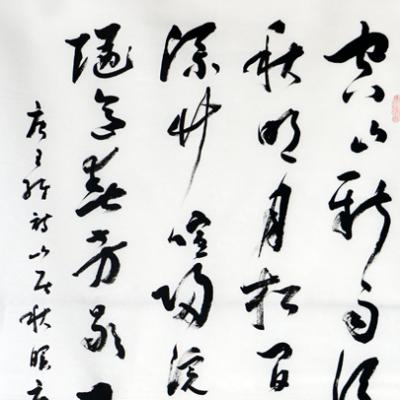 空山新雨後
秋明月松間
流竹喧歸浣
隨意春芳歇
唐王維詩山居秋暝